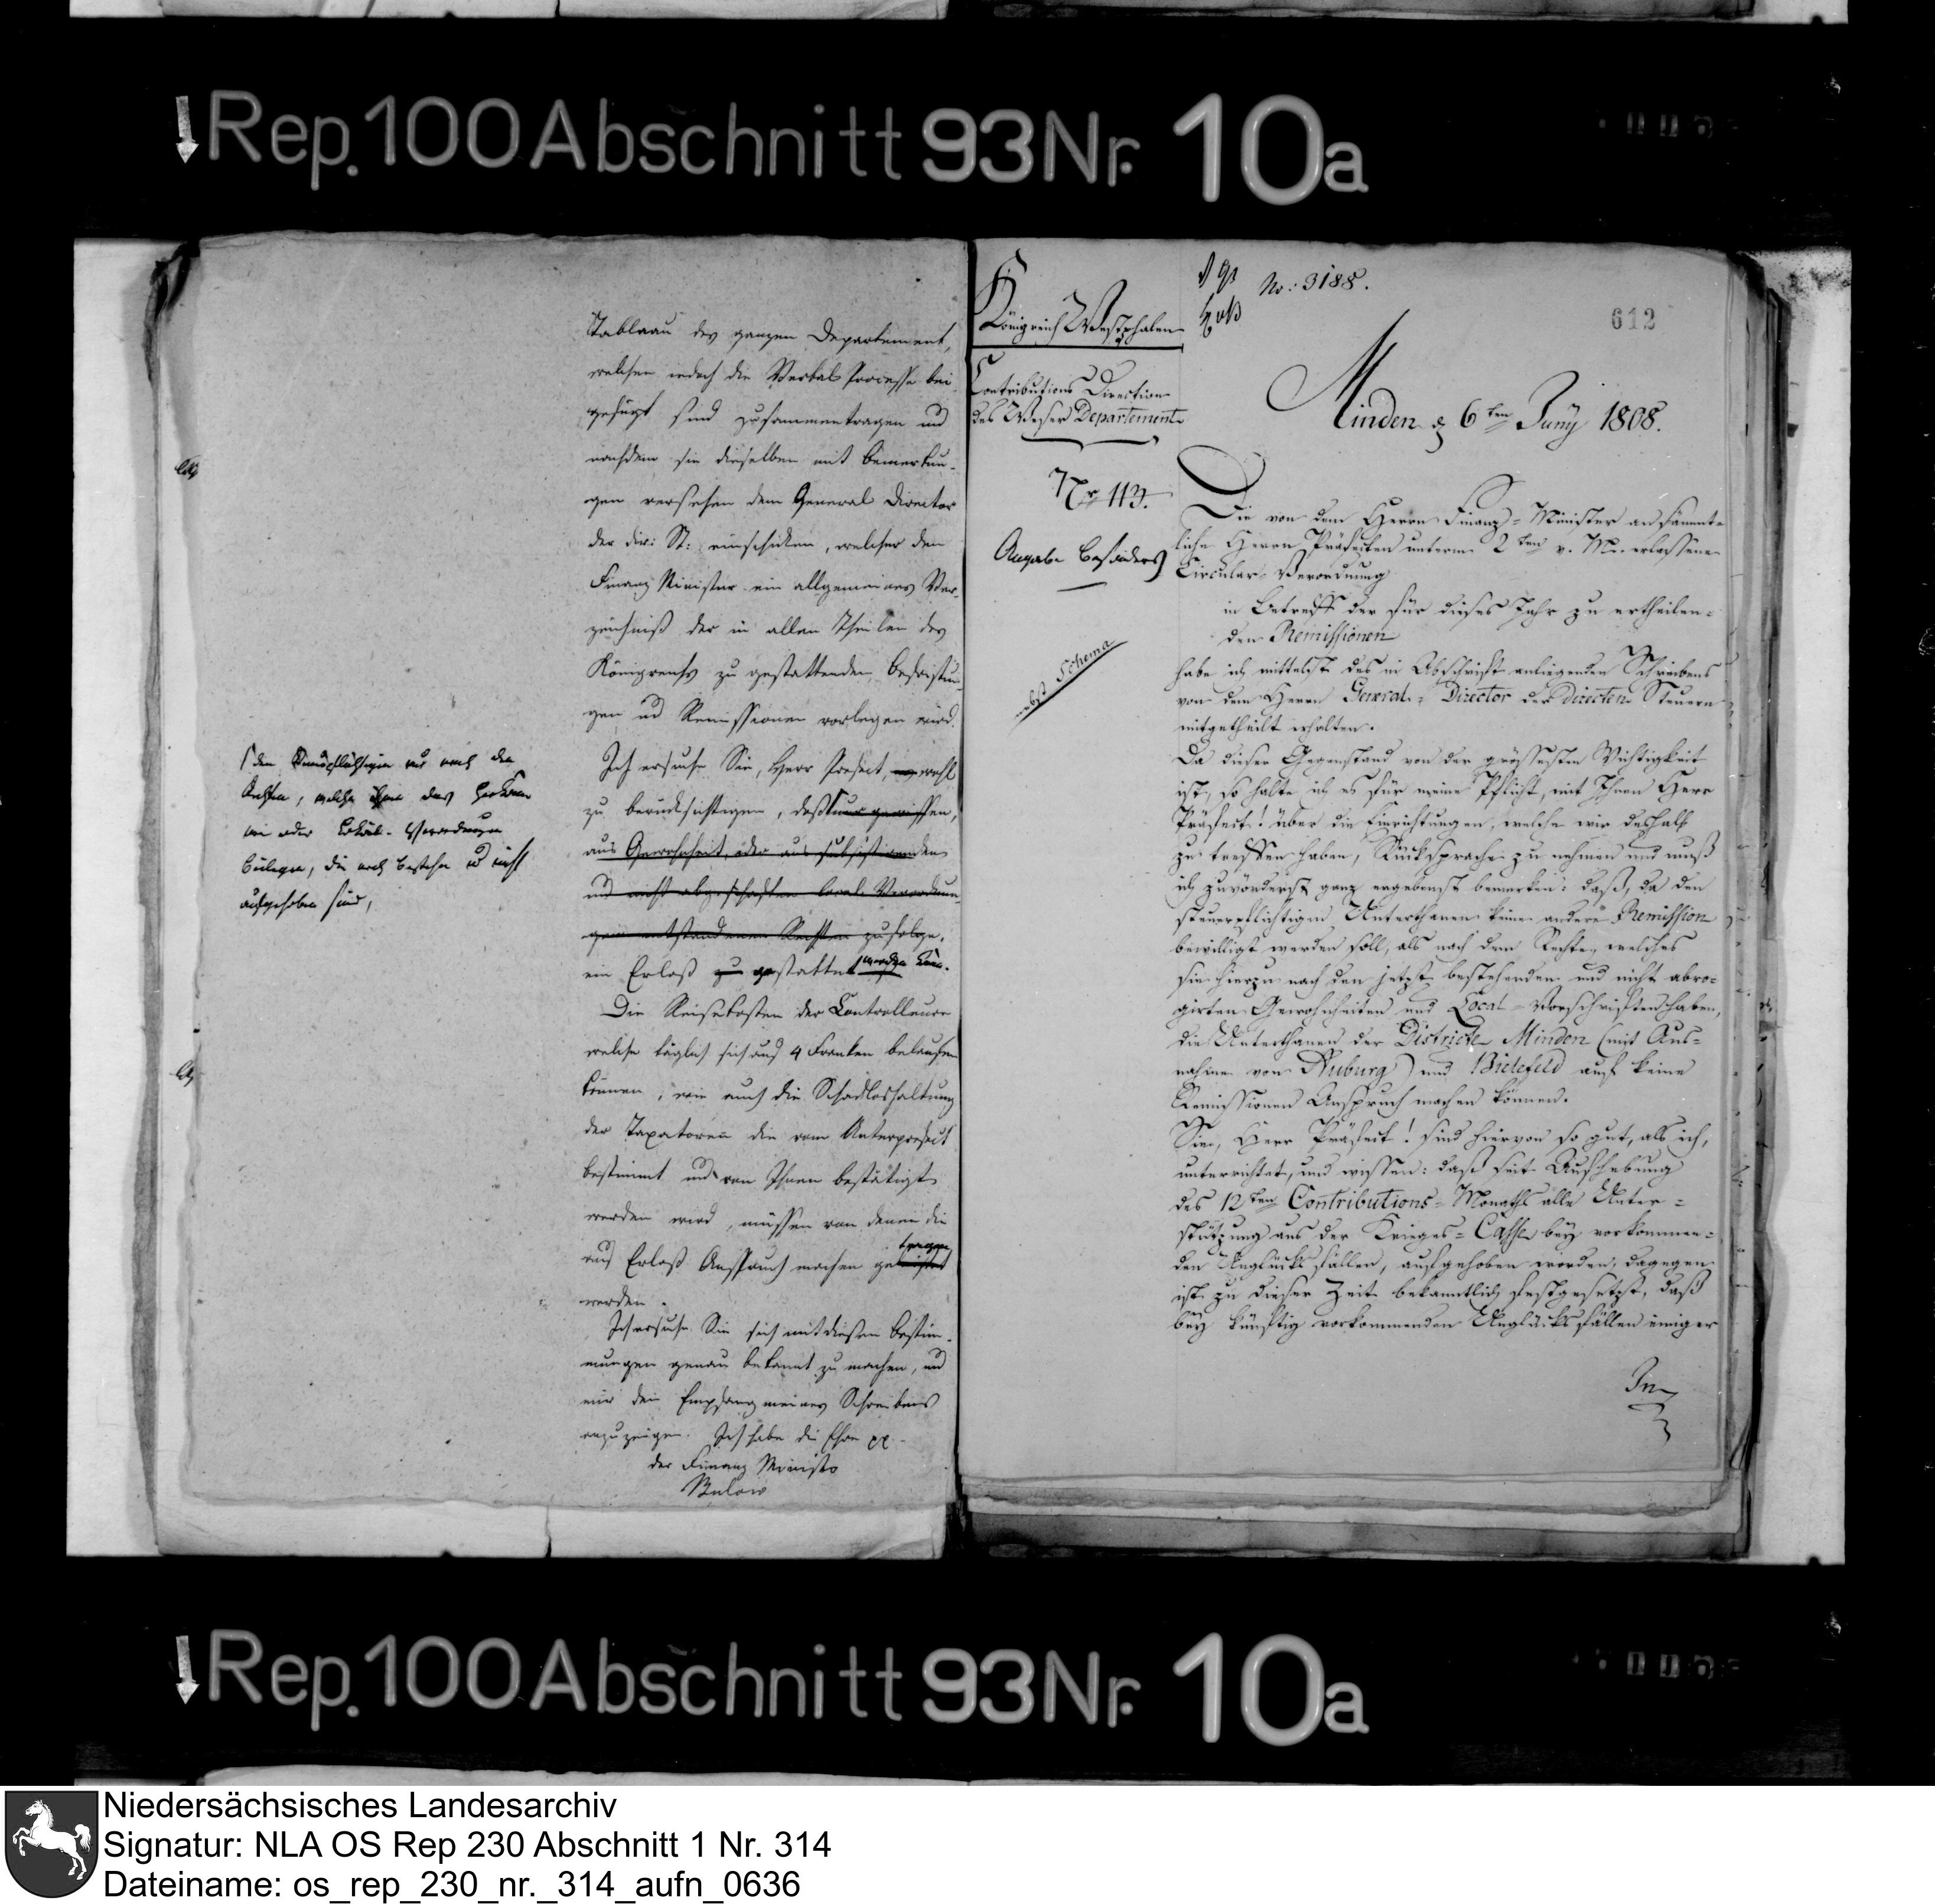 Rep. 100 Abschnitt 93 Nr. 10a
Tableau des ganzen Departement,
welchen jedoch die Verbal Processe bei
gefügt sind zusammentragen und
nachdem sie dieselben mit Bemerkun-
gen versehen dem General Director
der dir: St: einschicken, welcher dem
Finanz Minister ein allgemeines Ver-
zeichniß der in allen Theilen des
Königreichs zu gestattenden Befreiun-
gen und Remissionen vorlegen wird.
Ich ersuche Sie, Herr Prefect, wohl
zu berücksichtigen, daß nur gewissen,
aus Gewohnheit, oder aus subsistirenden
und nicht abgeschaften local Verordnun-
gen entstandenen Rechten zufolge,
ein Erlaß zu gestattet werden kann.
Die Reisekosten der Controlleure
welche täglich sich auf 4 Franken belaufen
können, wie auch die Schadloshaltung
der Taxatoren die vom Unterprefect
bestimmt und von Ihnen bestätigt
werden wird, müssen von denen die
auf Erlaß Anspruch machen getragen
werden.
Ich ersuche Sie sich mit diesen Bestim-
mungen genau bekannt zu machen, und
mir den Empfang meines Schreibens
anzuzeigen. Ich habe die Ehre
der Finanz Minister
Bulow
den nur nach den
Rechten, welche das Herkom
men oder Lokal-Verordnungen
beilegen, die noch bestehen und nicht
aufgehoben sind,
Königreich Westphalen
Contributions Direction
des Weser Departements
Nr 113.
nebst Schema
No: 3188.
612
Minden d 6ten Juny 1808.
Die von dem Herrn Finanz-Minister an sämmt-
liche Herrn Präfecten unterm 2ten v. Mt. erlassene
Circular-Verordnung
in Betreff der für dieses Jahr zu ertheilen-
den Remissionen
habe ich mittelst des in Abschrift anliegenden Schreibens
von dem Herrn General-Director der directen Steuern
mitgetheilt erhalten.
Da dieser Gegenstand von der größesten Wichtigkeit
ist, so halte ich es für meine Pflicht, mit Ihnen Herr
Präfect! über die Einrichtungen, welche wir deshalb
zu treffen haben, Rücksprache zu nehmen und muß
ich zuvörderst ganz ergebenst bemerken: daß, da den
steuerpflichtigen Unterthanen keine andere Remission
bewilligt werden soll, als nach dem Rechte, welches
sie hierzu nach den jetzt bestehenden und nicht abro-
girten Gewohnheiten und Local-Vorschriften haben,
die Unterthanen der Districte Minden (mit Aus-
nahme von Auburg) und Bielefeld auf keine
Remissionen Anspruch machen können.
Sie, Herr Präfect! sind hiervon so gut, als ich,
unterrichtet, und wissen: daß seit Aufhebung
des 12ten Contributions-Monaths alle Unter-
stützung aus der Krieges-Casse bey vorkommen-
den Unglücksfällen, aufgehoben worden, dagegen
ist zu dieser Zeit bekanntlich festgesetzt, daß
bey künftig vorkommenden Unglücksfällen einiger
Rep. 100 Abschnitt 93 Nr. 10a
Niedersächsisches Landesarchiv
Signatur: NLA OS Rep 230 Abschnitt 1 Nr. 314
Dateiname: os_rep_230_nr._314_aufn_0636